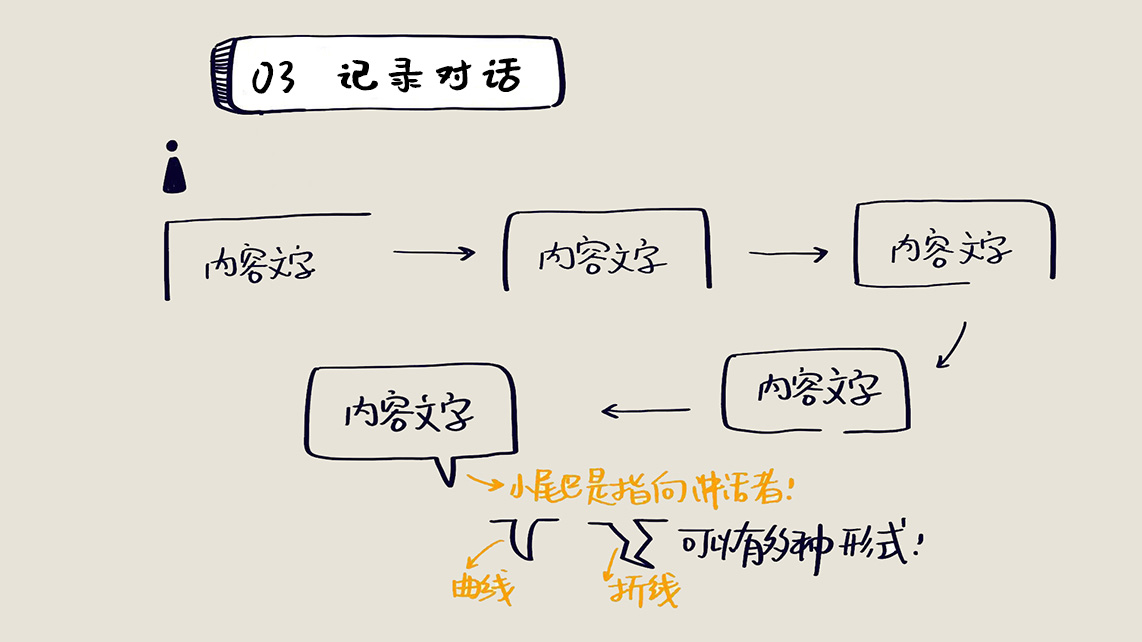 03 记录对话
内容文字
内容文字
内容文字
内容文字
内容文字
小尾巴是指向讲话者!
可以有多种形式!
曲线
折线